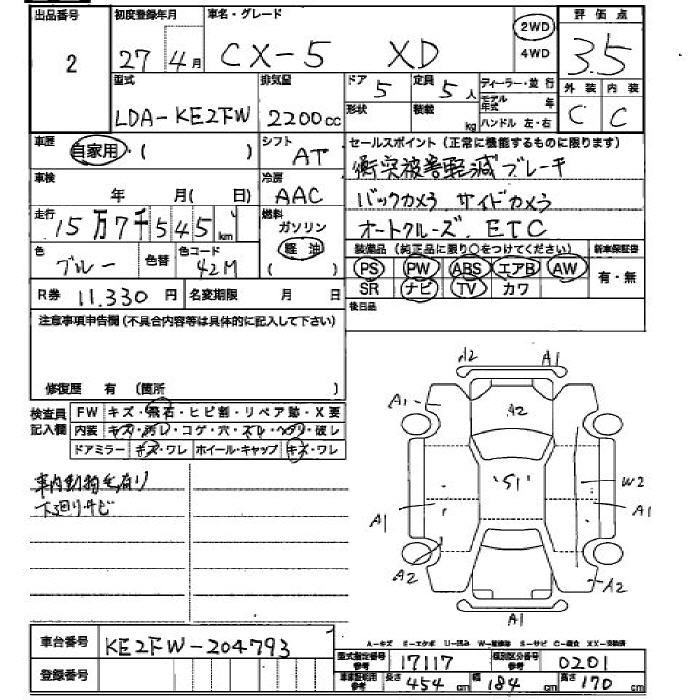 出品番号 初度登録年月 車名・グレード 2WD 評価点
2 27年4月 CX-5 XD 4WD 3.5
型式 排気量 ドア 定員 ディーラー・並行 外装 内装
LDA-KE2FW 2200cc 5 5人 モデル年式 年 C C
形状 積載 kg ハンドル 左・右
車歴 自家用・( ) シフト AT セールスポイント(正常に機能するものに限ります)
衝突被害軽減ブレーキ
車検 年 月( 日) 冷房 AAC バックカメラ サイドカメラ
走行 15万7千545km 燃料 ガソリン 軽油 ( ) オートクルーズ. ETC
色 ブルー 色替 色コード 42M 装備品(純正品に限り○をつけてください) 新車保証書
PS PW ABS エアB AW 有・無
R券 11,330円 名変期限 月 日 SR ナビ TV カワ
注意事項申告欄(不具合内容等は具体的に記入して下さい) 後日品
修復歴 有 (箇所 )
検査員記入欄 FW キズ・飛石・ヒビ割・リペア跡・X要
内装 キズ・汚レ・コゲ・穴・スレ・ヘタリ・破レ
ドアミラー キズ・ワレ ホイール・キャップ キズ・ワレ
車内動物毛有り
下廻りサビ
A2 A1
A1 A2
S1 W2
A1 A1
A2 A2
A1
A-キズ E-エクボ U-凹み W-補修跡 S-サビ C-腐食 XX-交換済
車台番号 KE2FW-204793 型式指定番号 参考 17117 類別区分番号 参考 0201
登録番号 車庫証明用 参考 長さ 454cm 幅 184cm 高さ 170cm